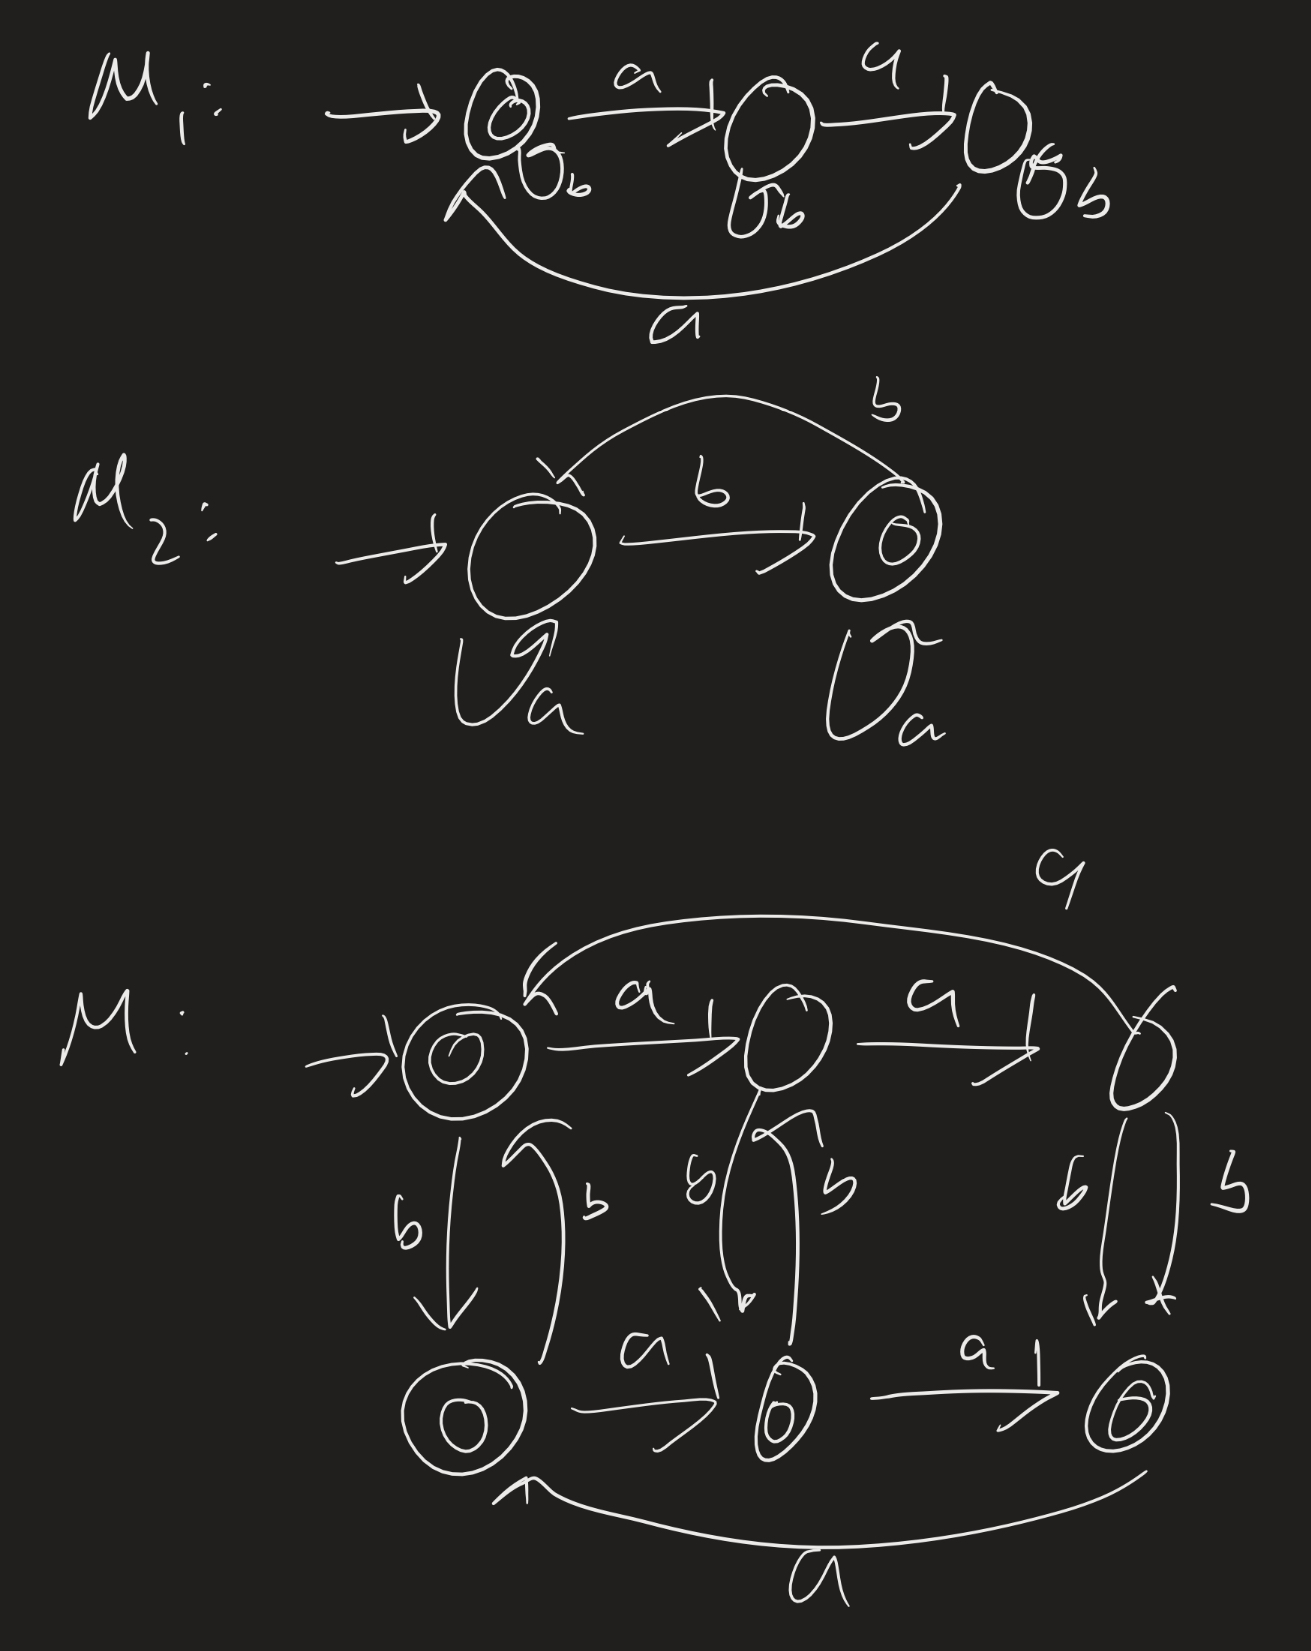 M₁:
a
a
b
b
b
a
M₂:
b
b
a
a
M:
a
a
a
b
b
b
b
b
b
a
a
a